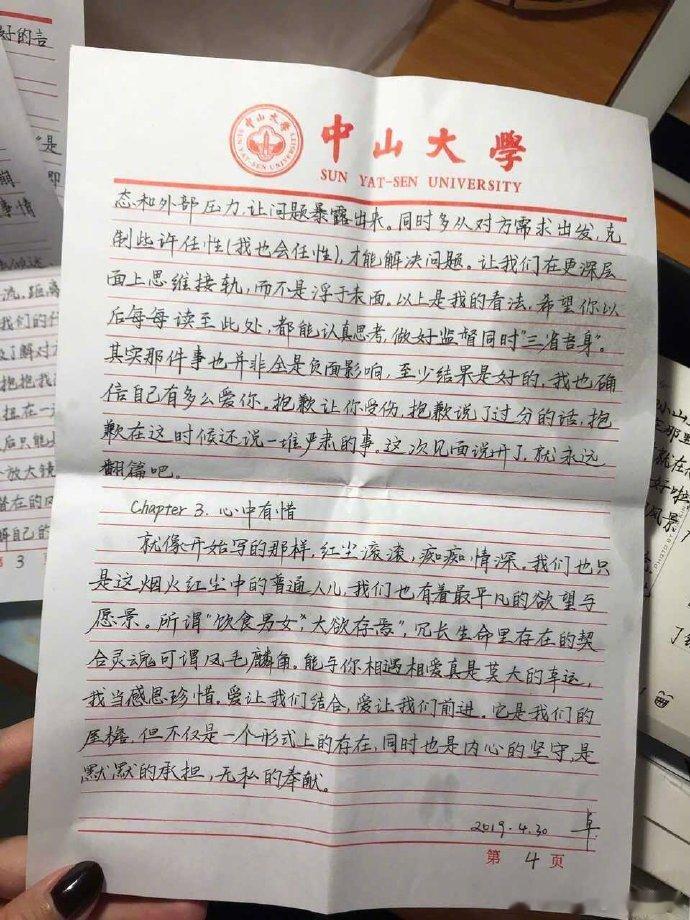 中山大學
SUN YAT-SEN UNIVERSITY
态和外部压力,让问题暴露出来。同时多从对方需求出发,克
制些许任性(我也会任性),才能解决问题。让我们在更深层
面上思维接轨,而不是浮于表面。以上是我的看法,希望你以
后每每读至此处,都能认真思考,做好监督同时"三省吾身"。
其实那件事也并非全是负面影响,至少结果是好的,我也确
信自己有多么爱你。抱歉让你受伤,抱歉说了过分的话,抱
歉在这时候还说一堆严肃的事。这次见面说开了,就永远
翻篇吧。
Chapter 3. 心中有惜
就像开始写的那样,红尘滚滚,痴痴情深。我们也只
是这烟火红尘中的普通人儿,我们也有着最平凡的欲望与
愿景。所谓"饮食男女","大欲存焉",冗长生命里存在的契
合灵魂可谓凤毛麟角。能与你相遇相爱真是莫大的幸运,
我当感恩珍惜。爱让我们结合,爱让我们前进。它是我们的
屋檐,但不仅是一个形式上的存在,同时也是内心的坚守,是
默默的承担,无私的奉献。
2019.4.30 卓
第 4 页
好的言
"是
即
事情
流,距离
我们的什
及了解对方
抱抱我
扭在一
后只能
放大镜
潜在的风
解自己的
第 3
小山
就在
好啦
风景